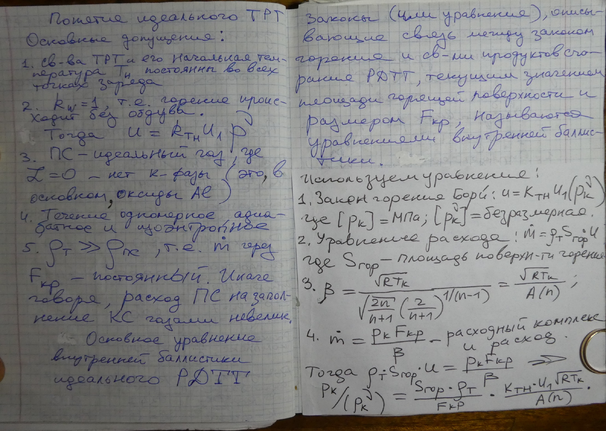 Понятие идеального ТРТ
Основные допущения:
1. Св-ва ТРТ и его начальная тем-
пература Tн постоянны во всех
точках заряда
2. Kw=1, т.е. горение проис-
ходит без обдува.
Тогда u = KTн u1 p^ν
3. ПС – идеальный газ, где
Z=0 – нет к-фазы (это, в
основном, оксиды Al)
4. Течение одномерное, адиа-
батное и изоэнтропное
5. ρT ≫ ρпс, т.е. ṁ через
Fкр – постоянный. Иначе
говоря, расход ПС на запол-
нение КС газами невелик.
Основное уравнение
внутренней баллистики
идеального РДТТ
Законы (или уравнения), описы-
вающие связь между законом
горения и св-ми продуктов сго-
рания РДТТ, текущим значением
площади горящей поверхности и
размером Fкр, называются
уравнениями внутренней баллис-
тики.
Используем уравнение:
1. Закон горения Бори: u = KTн u1 (pk^ν)
где [pk] = МПа; [pk^ν] = безразмерная.
2. Уравнение расхода: ṁ = ρT Sгор · u
где Sгор – площадь поверхн-ти горения
3. β = √RTk / (√(2n/(n+1)) (2/(n+1))^(1/(n-1))) = √RTk / A(n) ;
4. ṁ = pk Fкр / β – расходный комплекс
и расход.
Тогда ρT · Sгор · u = pk Fкр / β ⟹
pk/(pk^ν) = Sгор · ρT / Fкр · KTн · u1 √RTk / A(n) .